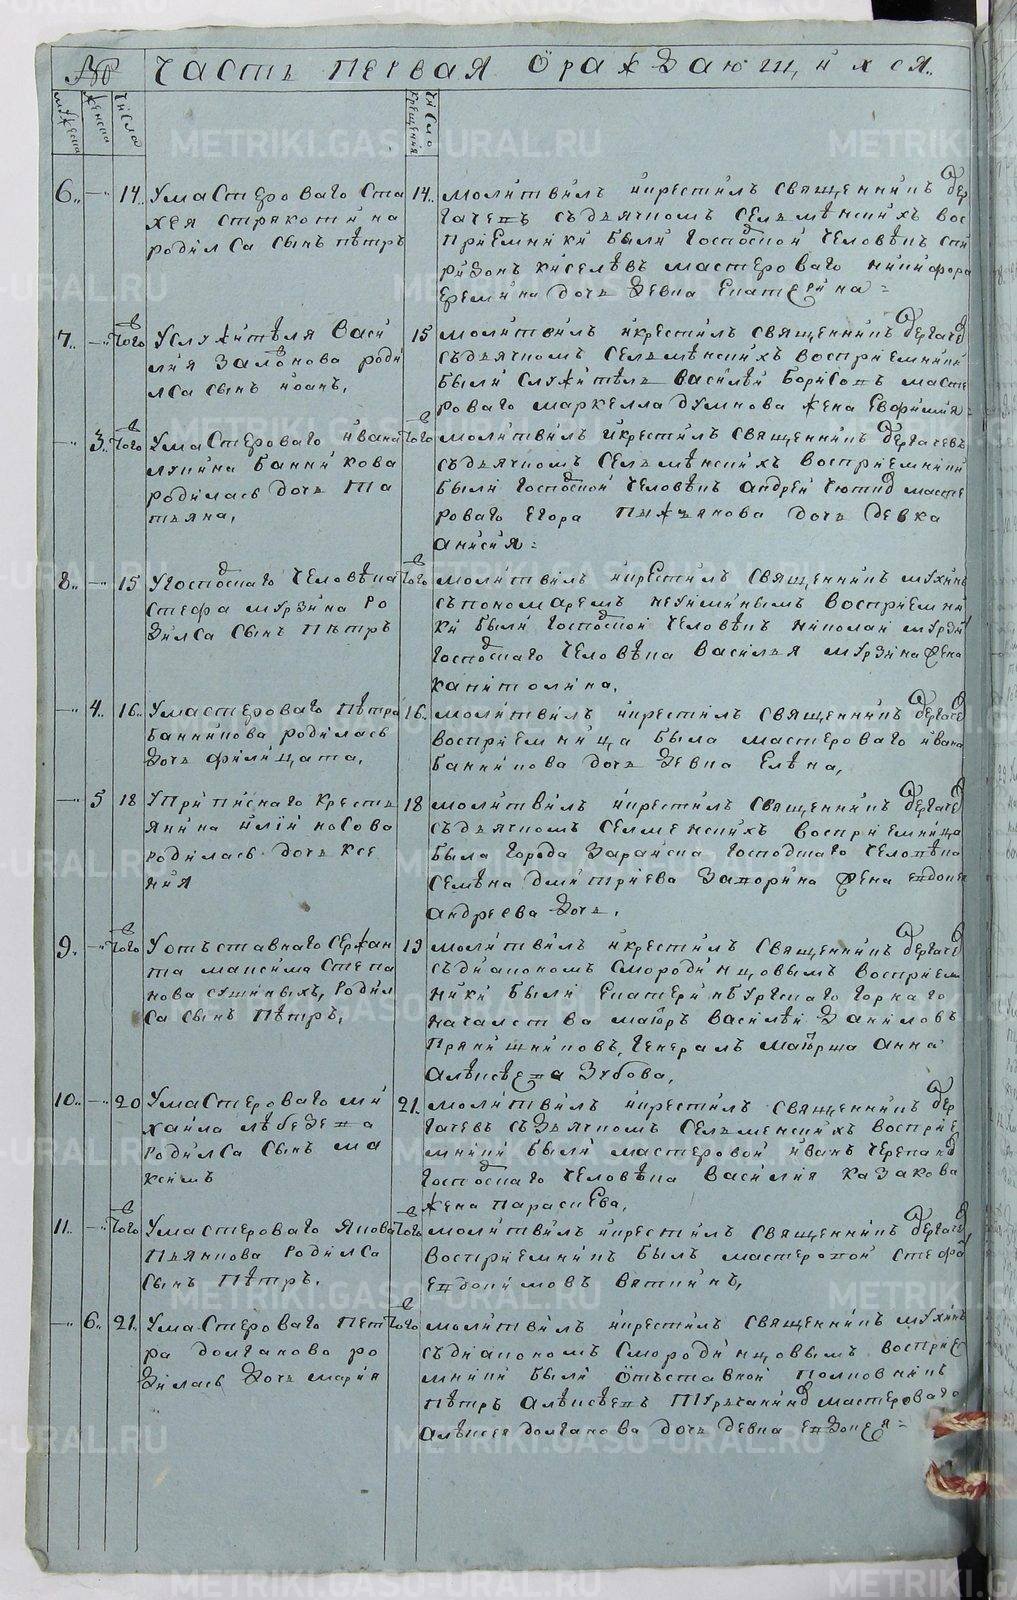 № Часть первая ѡраждающихся..
мужеска женска числа число крещения
6.. — 14.. Умастероваго Ста
хея стрякотина
родился сынъ пѣтръ
14.. молитвилъ икрестилъ священникъ Дер
гачевъ съдьячкомъ Селѣменскихъ вос
приемники были господской человѣкъ спи
ридонъ киселѣвъ мастероваго никифора
еремина дочь девка Екатерина =
7.. — тогов Услужителя васи
лия залонова роди
лса сынъ иоанъ,
15 молитвилъ икрестилъ священникъ Дергачев
съдьячкомъ Селѣменскихъ восприемники
были служитель василѣй борисовъ масте
роваго маркелла думнова жена евфимия =
— 3.. тогов Умастероваго ивана
лукина банникова
родилась дочь та
тьяна,
тогов молитвилъ икрестилъ священникъ Дергачевъ
съдьячкомъ Селѣменскихъ восприемники
были господской человѣкъ андрей масте
роваго егора пыжьянова дочь девка
анисия =
8.. — 15 Угосподскаго человѣка
стефа мурзина ро
дился сынъ пѣтръ
тогов молитвилъ икрестилъ священникъ мухинъ
съпономаремъ неуйминымъ восприемни
ки были господской человѣкъ николай мурзин
господскаго человѣка василья мурзина жена
капитолина,
— 4.. 16.. Умастероваго пѣтра
банникова родилась
дочь филицата,
16.. молитвилъ икрестилъ священникъ Дергачев
восприемница была мастероваго ивана
банникова дочь девка елѣна,
— 5 18 Уприписнаго кресть
янина илии носова
родилась дочь ксе
ния
18 молитвилъ икрестилъ священникъ Дергачев
съдьячкомъ Селменскихъ восприемница
была города зарайска господскаго человѣка
семѣна дмитриева запорина жена евдокея
андреева дочь,
9.. — тогов Уотъставнаго сержан
та максима степа
нова сушиныхъ, родил
са сынъ пѣтръ,
19 молитвилъ икрестилъ священникъ Дергачев
съдиакономъ смородинцовымъ восприем
ники были екатеринбургскаго горнаго
началства маиоръ василѣй даниловъ
прянишниковъ, генералъ маиорша анна
алѣксѣева зубова,
10.. — 20 Умастероваго ми
хаила лѣбедева
родился сынъ ма
ксимъ
21.. молитвилъ икрестилъ священникъ Дер
гачевъ съдьячкомъ Селѣменскихъ восприе
мники были мастеровой иванъ черепанов
господскаго человѣка василия казакова
жена параскева,
11.. — тогов Умастероваго якова
пьянкова родился
сынъ пѣтръ,
тогов молитвилъ икрестилъ священникъ Дергачев
восприемникъ былъ мастеровой стефан
евдокимовъ вяткинъ,
— 6.. 21.. Умастероваго пет
ра долганова ро
дилась дочь мария
тогов молитвилъ икрестилъ священникъ мухинъ
съдиакономъ смородинцовымъ восприе
мники были ѡтъставной полковникъ
пѣтръ алѣксѣевъ турчанинов мастероваго
алѣксея долганова дочь девка евдокея =